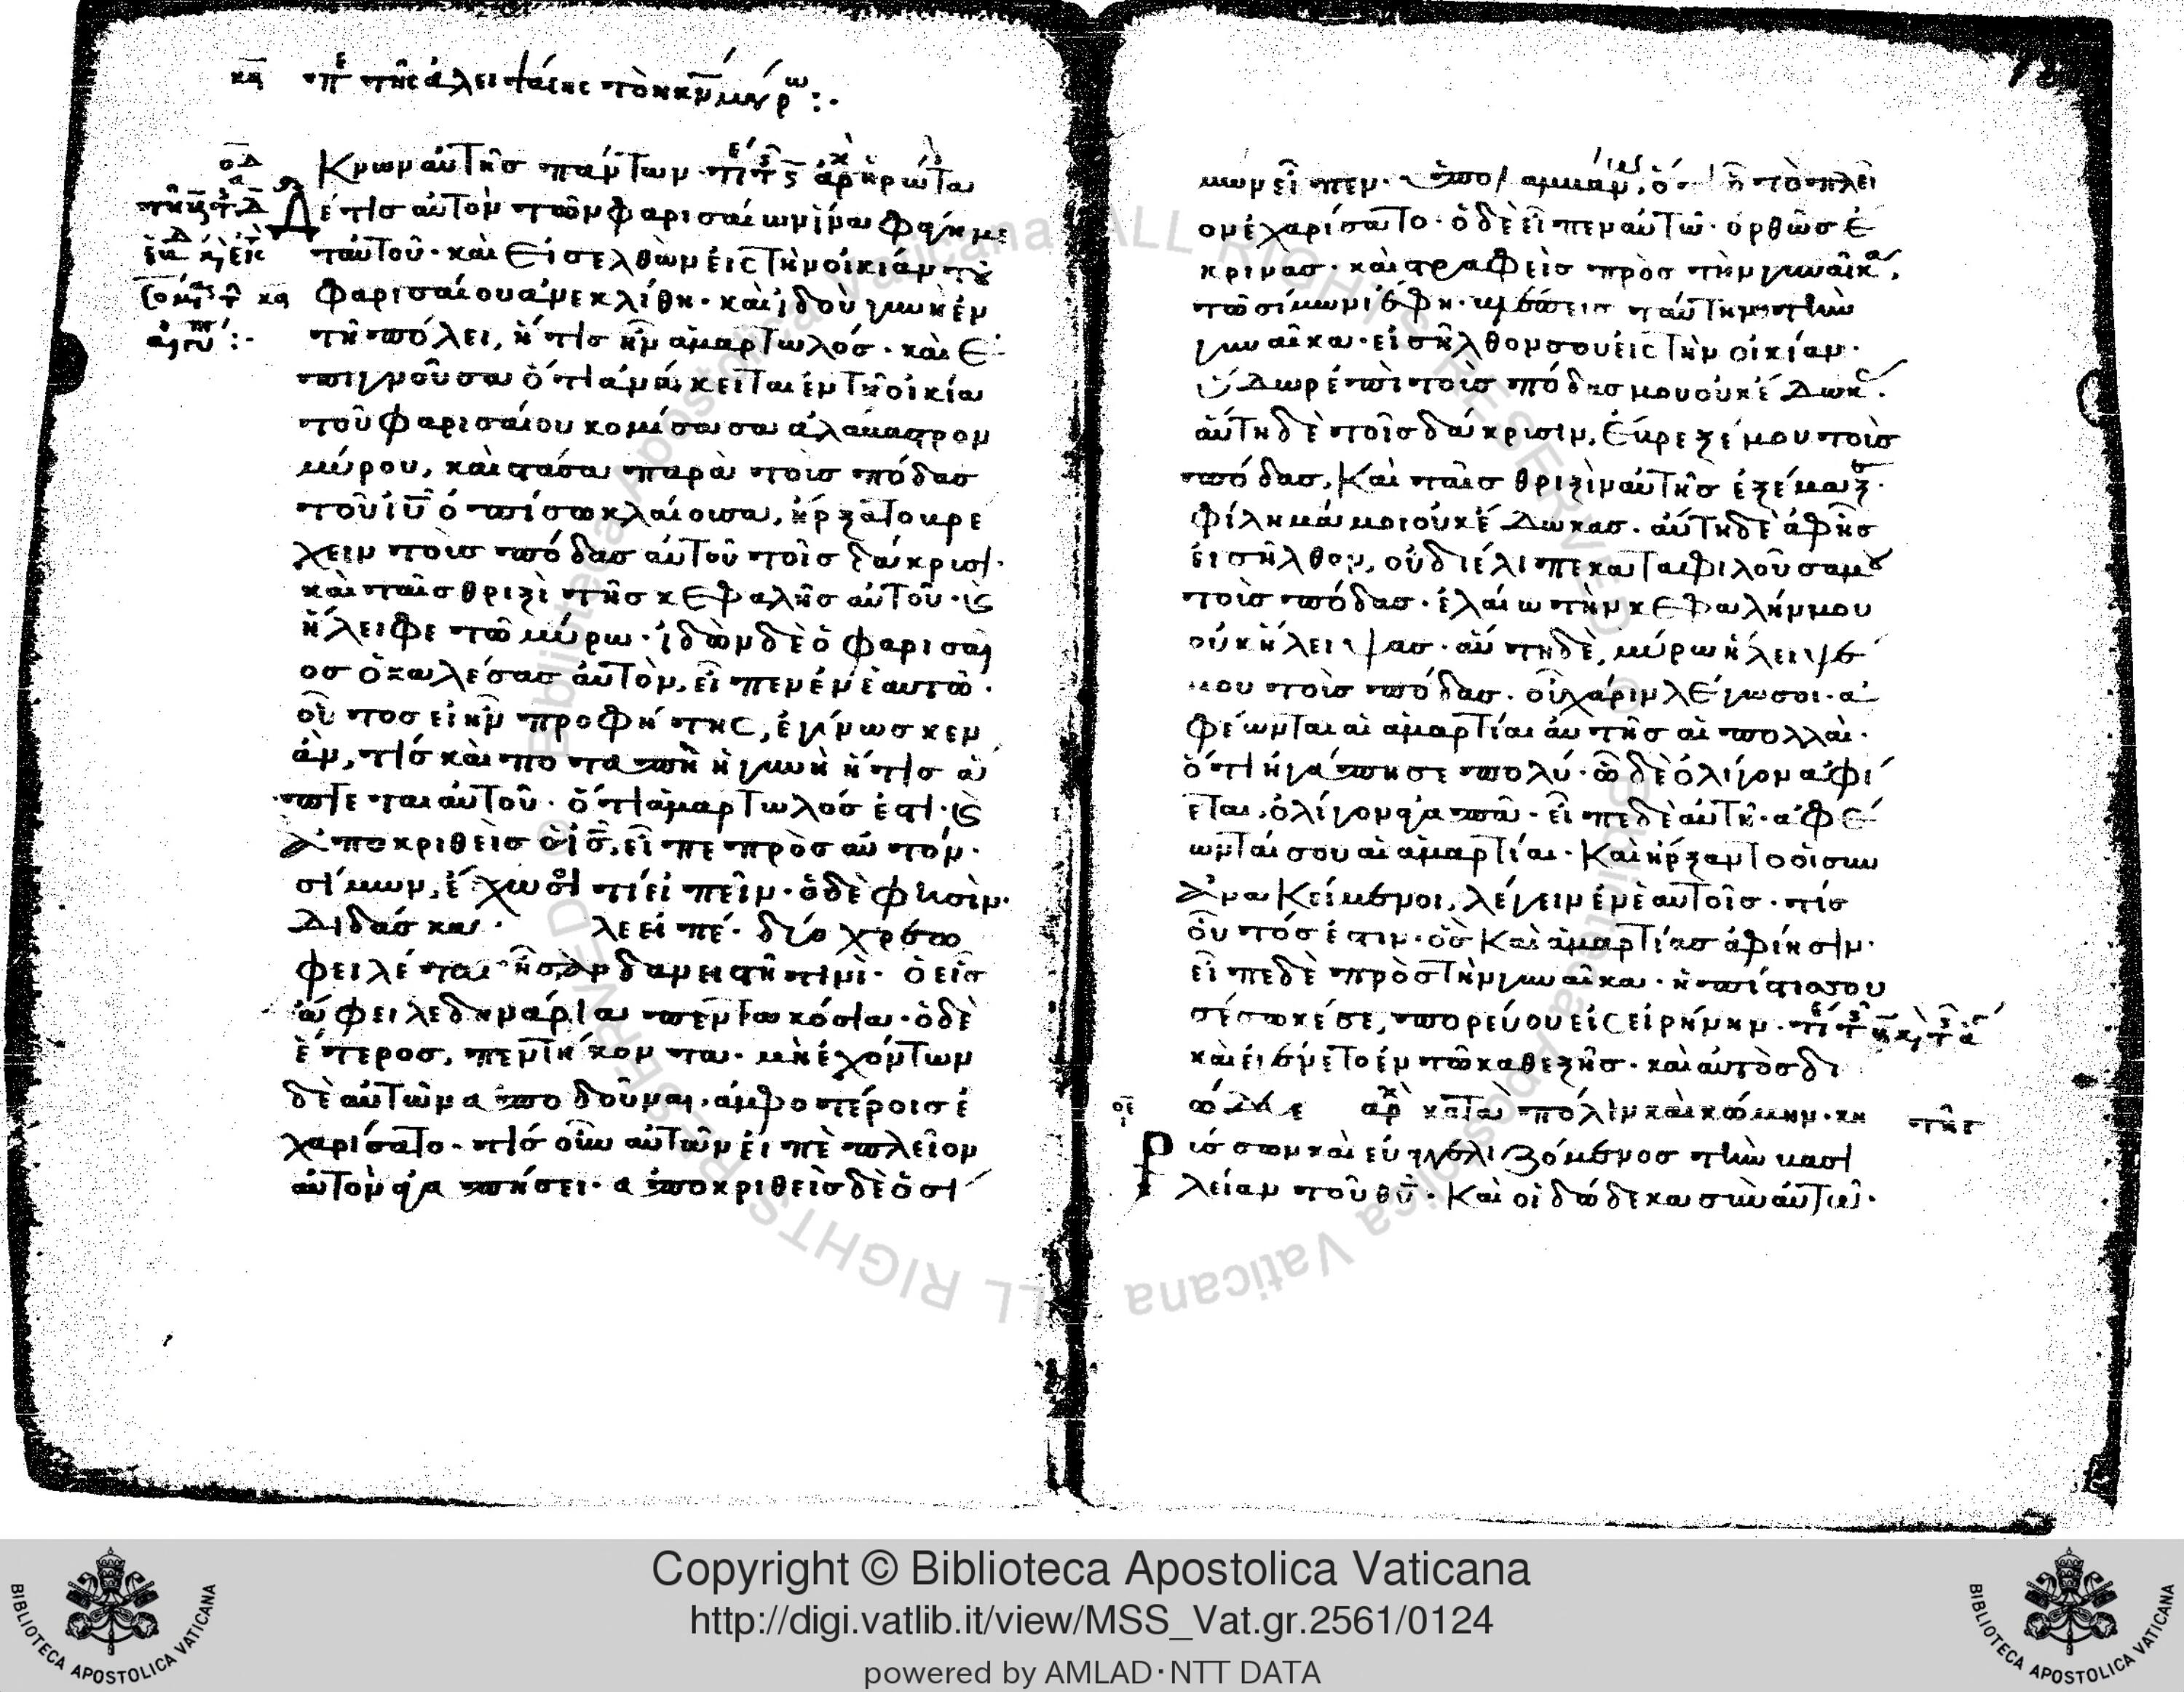 κη περὶ τῆς ἀλειψάσης τὸν κν μύρω :·
Κνων αὐτῆς πάντων· ἀρχ ἠρώτα
Δέ τις αὐτὸν τῶν φαρισαίων ἵνα φάγη με
τ' αὐτοῦ· καὶ εἰσελθὼν εἰς τὴν οἰκίαν τοῦ
φαρισαίου ἀνεκλίθη· καὶ ἰδοὺ γυνὴ ἐν
τῆ πόλει, ἥτις ἦν ἁμαρτωλός· καὶ ἐ
πιγνοῦσα ὅτι ἀνάκειται ἐν τῆ οἰκία
τοῦ φαρισαίου κομίσασα ἀλάβαστρον
μύρου, καὶ στᾶσα παρὰ τοὺς πόδας
τοῦ ἰυ ὀπίσω κλαίουσα, ἤρξατο βρέ
χειν τοὺς πόδας αὐτοῦ τοῖς δάκρυσι·
καὶ ταῖς θριξὶ τῆς κεφαλῆς αὐτοῦ· καὶ
ἤλειφε τῶ μύρω· ἰδὼν δὲ ὁ φαρισαῖ
ος ὁ καλέσας αὐτὸν, εἶπεν ἐν ἑαυτῶ·
οὗτος εἰ ἦν προφήτης, ἐγίνωσκεν
ἂν, τίς καὶ ποταπὴ ἡ γυνὴ ἥτις ἅ
πτεται αὐτοῦ· ὅτι ἁμαρτωλός ἐστι· καὶ
ἀποκριθεὶς ὁ ἰς, εἶπε πρὸς αὐτόν·
σίμων, ἔχω σοί τι εἰπεῖν· ὁ δὲ φησὶν·
Διδάσκα λε εἰπέ· δύο χρεω
φειλέται ἦσαν δανειστῆ τινὶ· ὁ εἷς
ὤφειλε δηνάρια πεντακόσια· ὁ δὲ
ἕτερος, πεντήκοντα· μὴ ἐχόντων
δὲ αὐτῶν ἀποδοῦναι, ἀμφοτέροις ἐ
χαρίσατο· τίς οὖν αὐτῶν εἰπὲ πλεῖον
αὐτὸν ἀγαπήσει· ἀποκριθεὶς δὲ ὁ σί
μων εἶπεν· ὑπολαμβάν, ὅ τὸ πλεῖ
ον ἐχαρίσατο· ὁ δὲ εἶπεν αὐτῶ· ὀρθῶς ἔ
κρινας· καὶ στραφεὶς πρὸς τὴν γυναῖκα,
τῶ σίμωνι ἔφη· βλέπεις ταύτην τὴν
γυναῖκα· εἰσῆλθον σου εἰς τὴν οἰκίαν·
ὕδωρ ἐπὶ τοὺς πόδας μου οὐκ ἔδωκ·
αὕτη δὲ τοῖς δάκρυσιν, ἔβρεξέ μου τοὺς
πόδας, Καὶ ταῖς θριξὶν αὐτῆς ἐξέμαξε·
φίλημά μοι οὐκ ἔδωκας· αὕτη δὲ ἀφῆς
εἰσῆλθον, οὐ διέλιπε καταφιλοῦσα μου
τοὺς πόδας· ἐλαίω τὴν κεφαλήν μου
οὐκ ἤλειψας· αὕτη δὲ, μύρω ἤλειψέ
μου τοὺς πόδας· οὗ χάριν λέγω σοι· ἀ
φέωνται αἱ ἁμαρτίαι αὐτῆς αἱ πολλαὶ·
ὅτι ἠγάπησε πολύ· ὧ δὲ ὀλίγον ἀφί
εται, ὀλίγον ἀγαπᾶ· εἶπε δὲ αὐτῆ· ἀφέ
ωνταί σου αἱ ἁμαρτίαι· Καὶ ἤρξαντο οἱ συν
ἀνακείμενοι, λέγειν ἐν ἑαυτοῖς· τίς
οὗτός ἐστιν· ὃς Καὶ ἁμαρτίας ἀφίησιν·
εἶπε δὲ πρὸς τὴν γυναῖκα· ἡ πίστις σου
σέσωκέ σε, πορεύου εἰς εἰρήνην·
καὶ ἐγένετο ἐν τῶ καθεξῆς· καὶ αὐτὸς δι
ώδευε ἀρχ κατὰ πόλιν καὶ κώμην· κη
ρύσσων καὶ εὐαγγελιζόμενος τὴν βασι
λείαν τοῦ θυ· Καὶ οἱ δώδεκα σὺν αὐτῶ·
Copyright © Biblioteca Apostolica Vaticana
http://digi.vatlib.it/view/MSS_Vat.gr.2561/0124
powered by AMLAD·NTT DATA
BIBLIOTECA APOSTOLICA VATICANA
BIBLIOTECA APOSTOLICA VATICANA